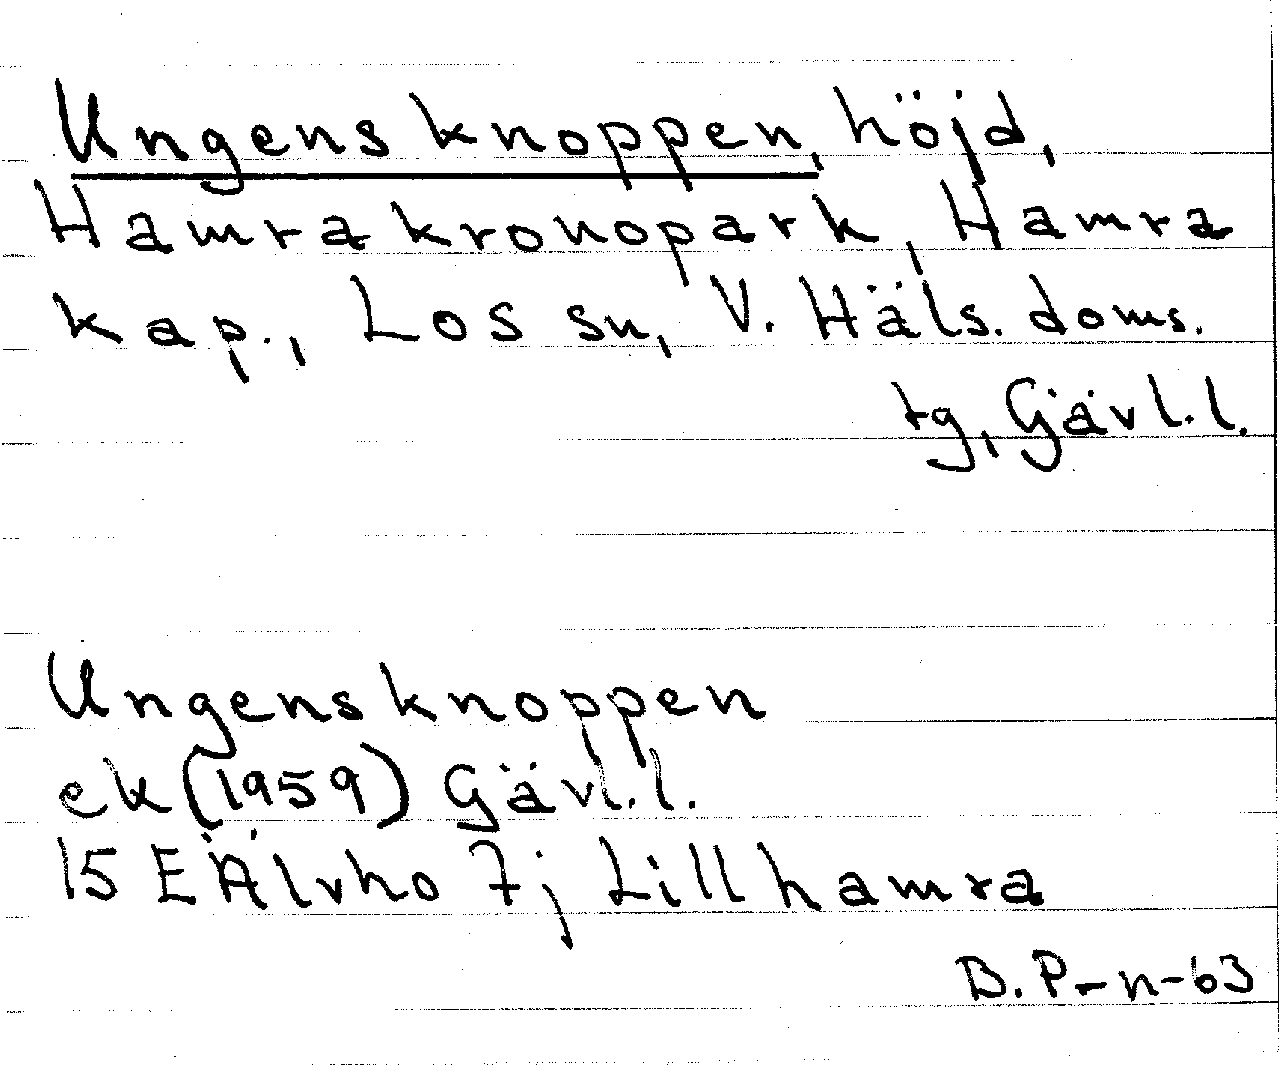 Ungensknoppen, höjd,
Hamra kronopark, Hamra
kap., Los sn, V. Häls. doms.
tg, Gävl.l.
Ungensknoppen
ek (1959) Gävl.l.
15 E Älvho 7j Lillhamra
B. P-n-63